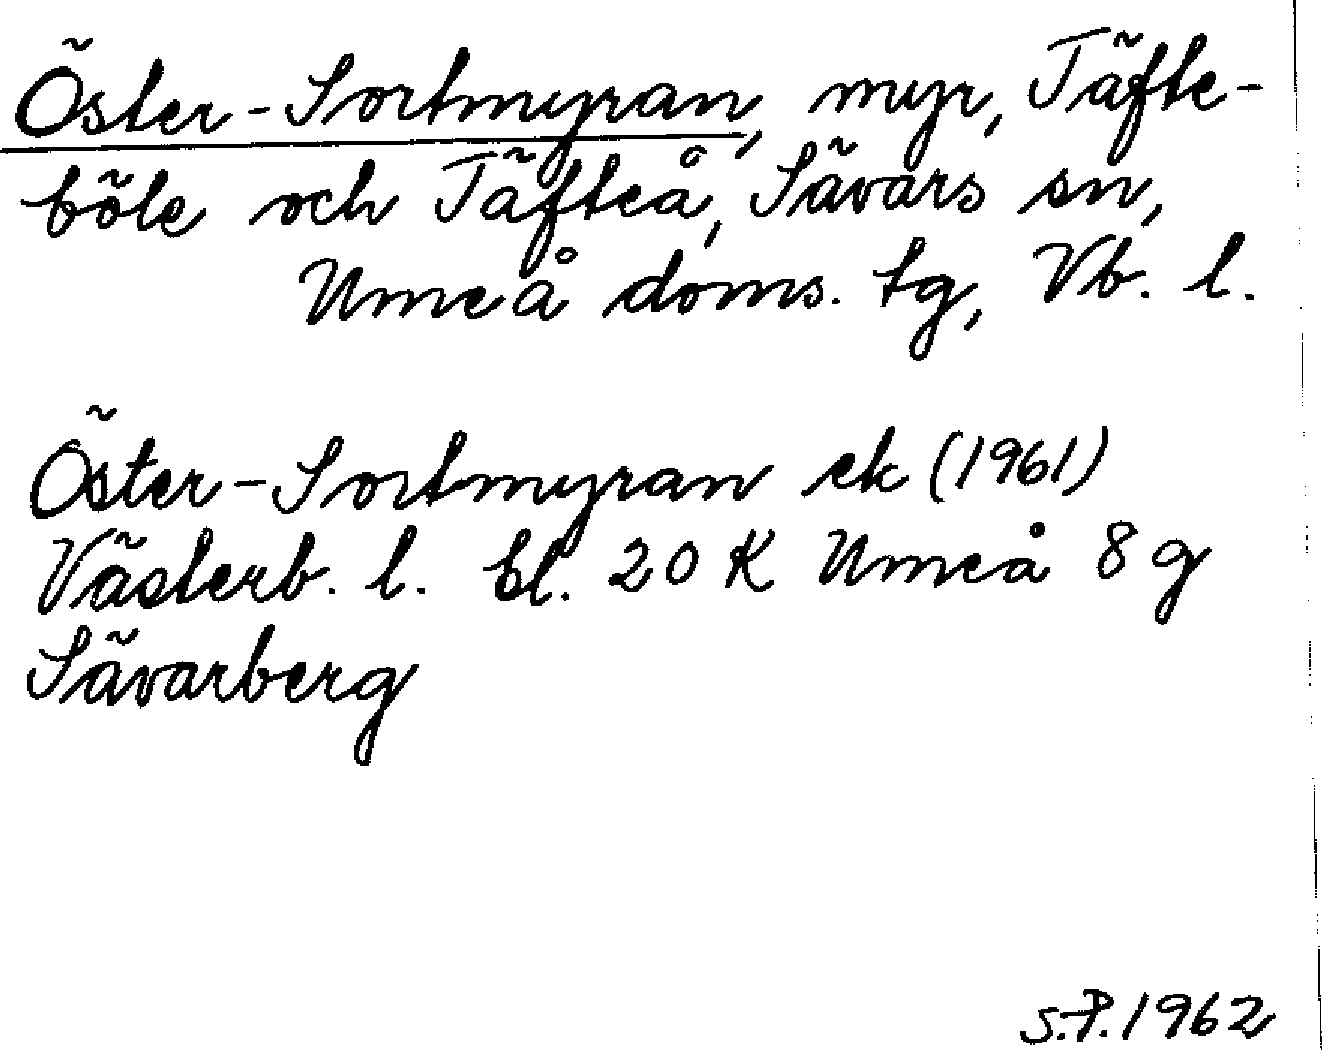 Öster-Sortmyran, myr, Täfte-
böle och Täfteå, Sävars sn,
Umeå doms. tg, Vb. l.
Öster-Sortmyran ek (1961)
Västerb. l. bl. 20 K Umeå 8 g
Sävarberg
S.P. 1962